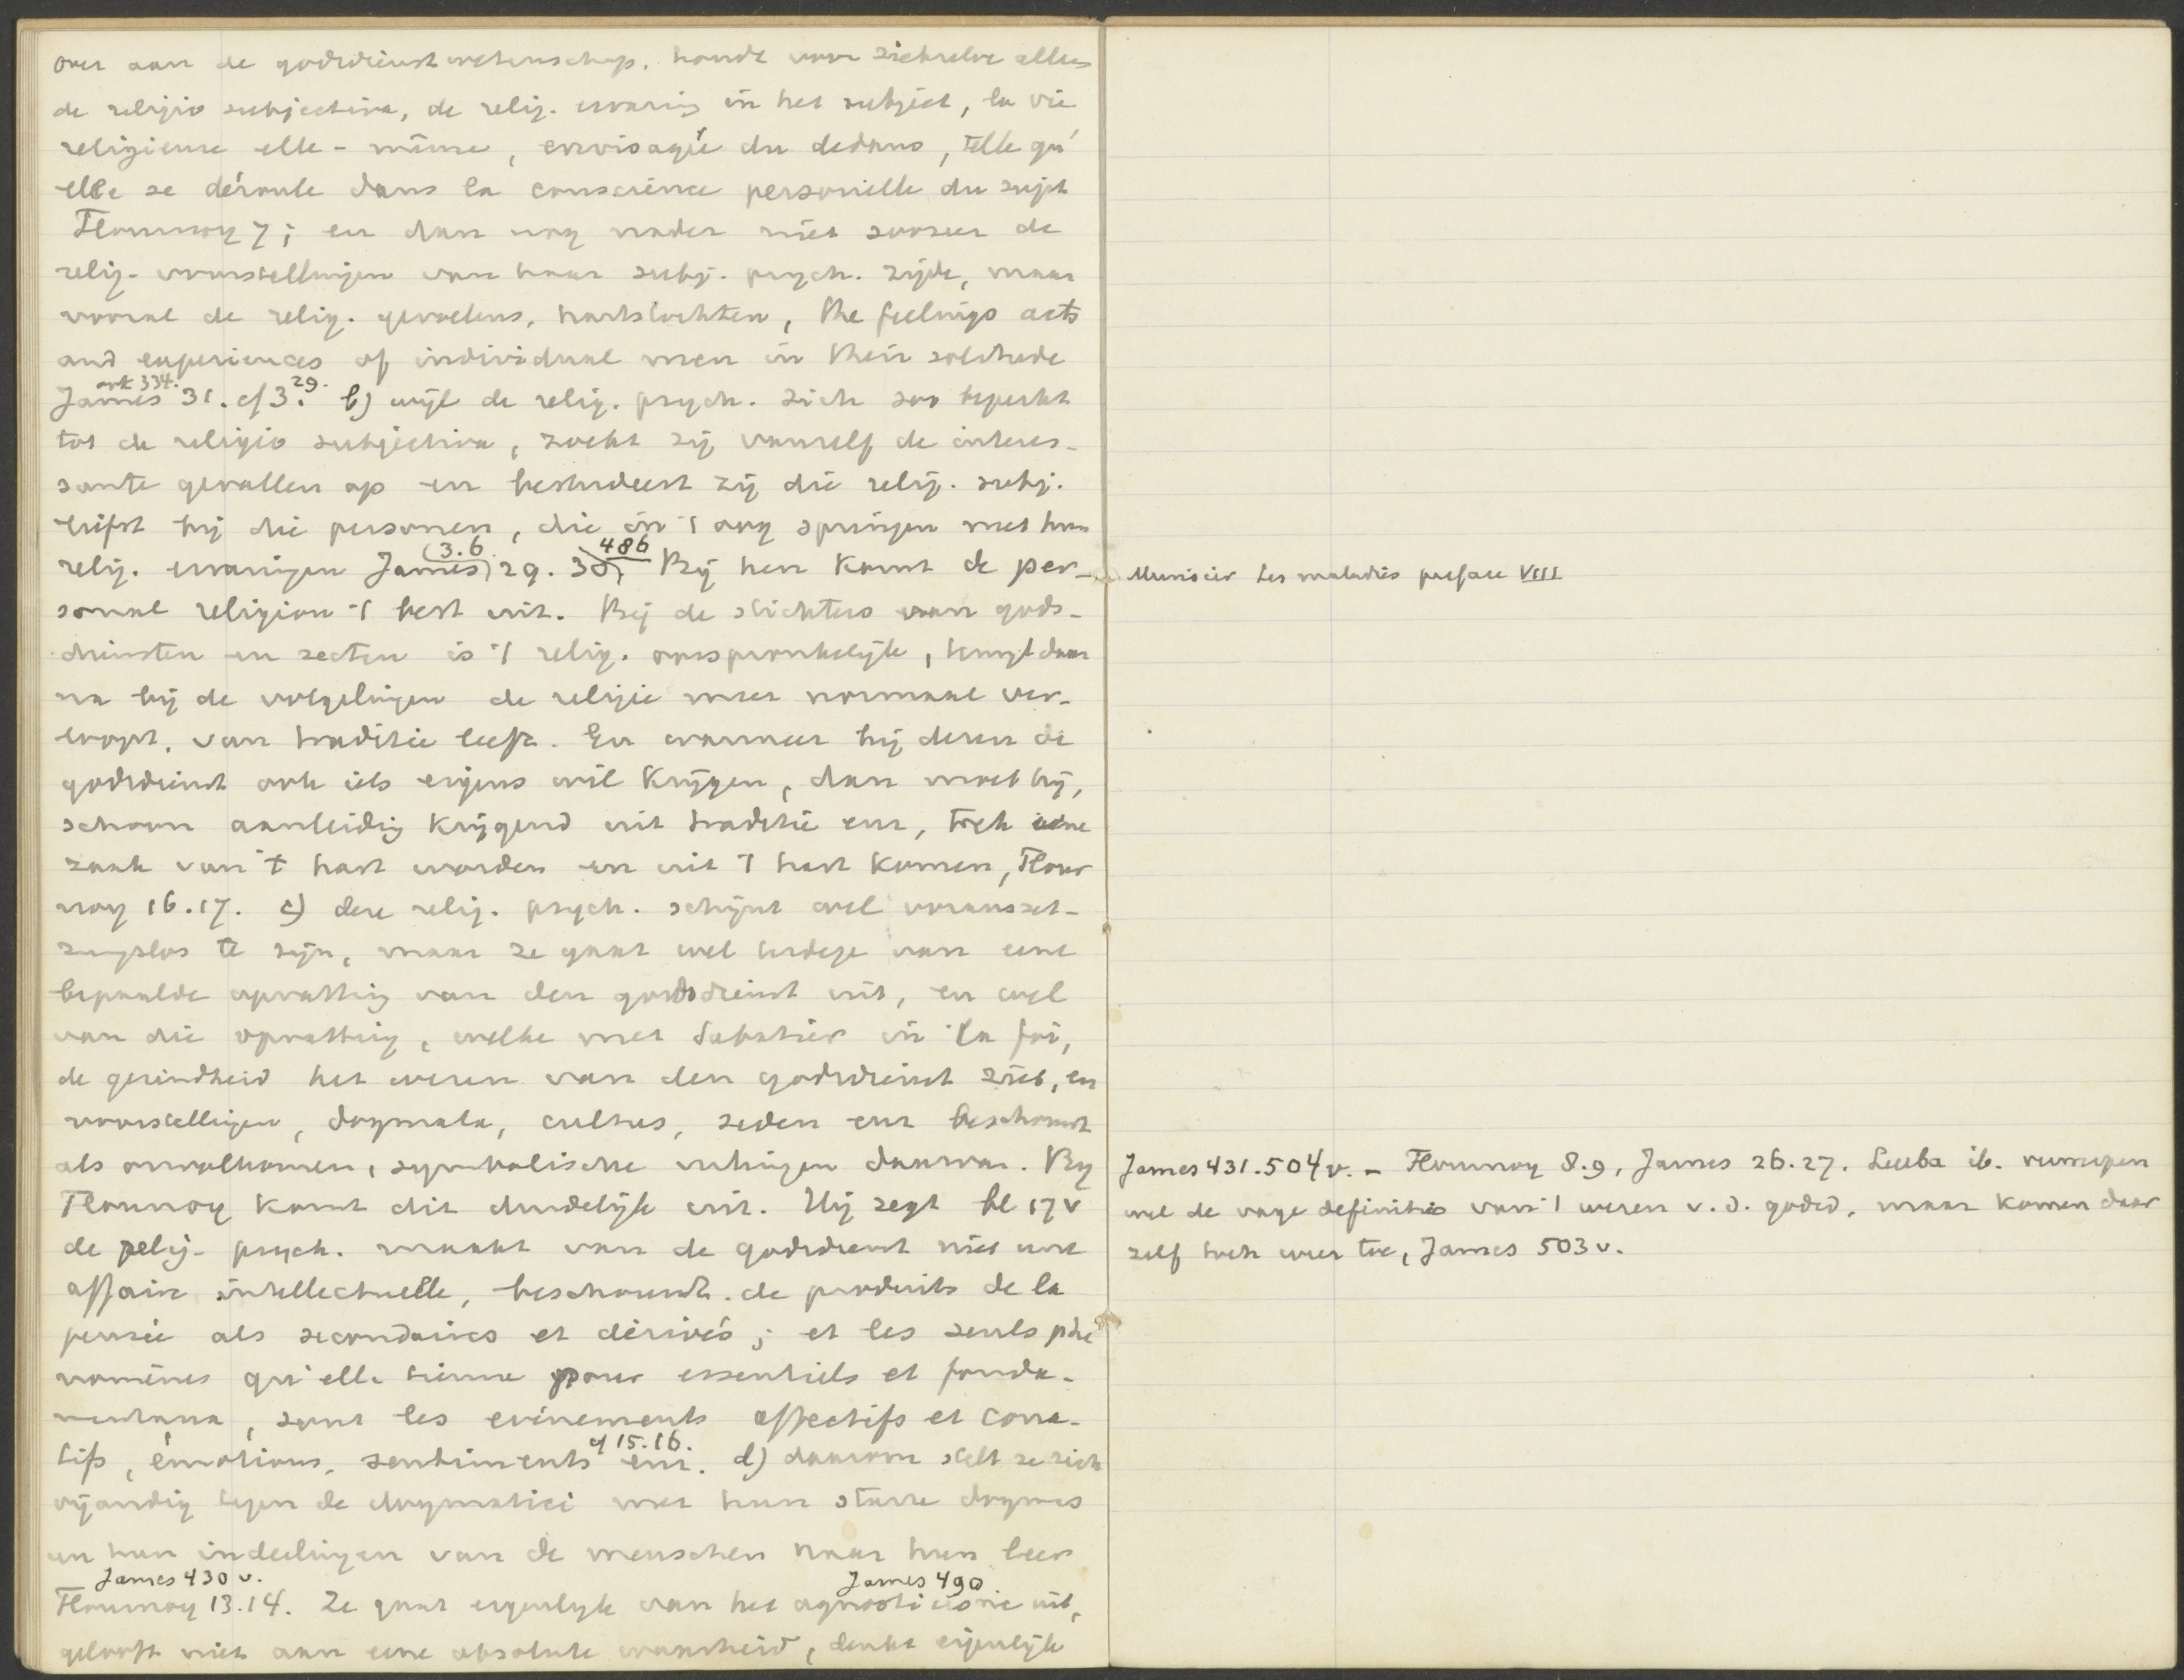 over aan de godsdienstwetenschap, houdt voor zichzelve alleen
de religio subjectiva, de relig. ervaring in het subject, la vie
religieuse elle-même, envisagée du dedans, telle qu'
elle se déroule dans la conscience personelle du sujet
Flournoy 7; en dan nog nader niet zoozeer de
relig. voorstellingen van haar subj. psych. zijde, maar
vooral de relig. gevoelens, hartstochten, the feelings acts
and experiences of individual men in their solitude
ook 334. 29.
James 31. cf 3. b) wijl de relig. psych. zich zoo beperkt
tot de religio subjectiva, zoekt zij vanzelf de interes-
sante gevallen op en bestudeert zij die relig. subj.
liefst bij die personen, die in 't oog springen met hun
(3.6. 486
relig. ervaringen James) 29. 30, Bij hen komt de per-
sonal religion 't best uit. Bij de stichters van gods-
diensten en secten is 't relig. oorspronkelijk, terwijl daar
na bij de volgelingen de religie meer normaal ver-
loopt, van traditie leeft. En wanneer bij dezen de
godsdienst ook iets eigens wil krijgen, dan moet hij,
schoon aanleiding krijgend uit traditie enz, toch eene
zaak van 't hart worden en uit 't hart komen, Flour
noy 16.17. c) deze relig. psych. schijnt wel voorausset-
zungslos te zijn, maar ze gaat wel terdege van eene
bepaalde opvatting van den godsdienst uit, en wel
van die opvatting, welke met Sabatier in la foi,
de gezindheid het wezen van den godsdienst ziet, en
voorstellingen, dogmata, cultus, zeden enz beschouwt
als onvolkomen, symbolische uitingen daarvan. Bij
Flournoy komt dit duidelijk uit. Hij zegt bl 17 v
de relig. psych. maakt van de godsdienst niet une
affaire intellectuelle, beschouwt de produits de la
pensée als secondaires et dérivés; et les seuls phé
nomènes qu'elle tienne pour essentiels et fonda-
mentaux, sont les evénements affectifs et cona-
cf 15.16.
tifs, émotions, sentiments enz. d) daarom stelt ze zich
vijandig tegen de dogmatici met hun starre dogmas
en hun indeelingen van de menschen naar hun leer
James 430 v. James 490.
Flournoy 13.14. Ze gaat eigenlijk van het agnosticisme uit,
gelooft niet aan eene absolute waarheid, denkt eigenlijk
Murisier Les maladies preface VIII
James 431.504 v. - Flournoy 8.9, James 26.27. Leuba ib. verwerpen
wel de vage definities van 't wezen v. d. godsd. maar komen daar
zelf toch weer toe, James 503 v.